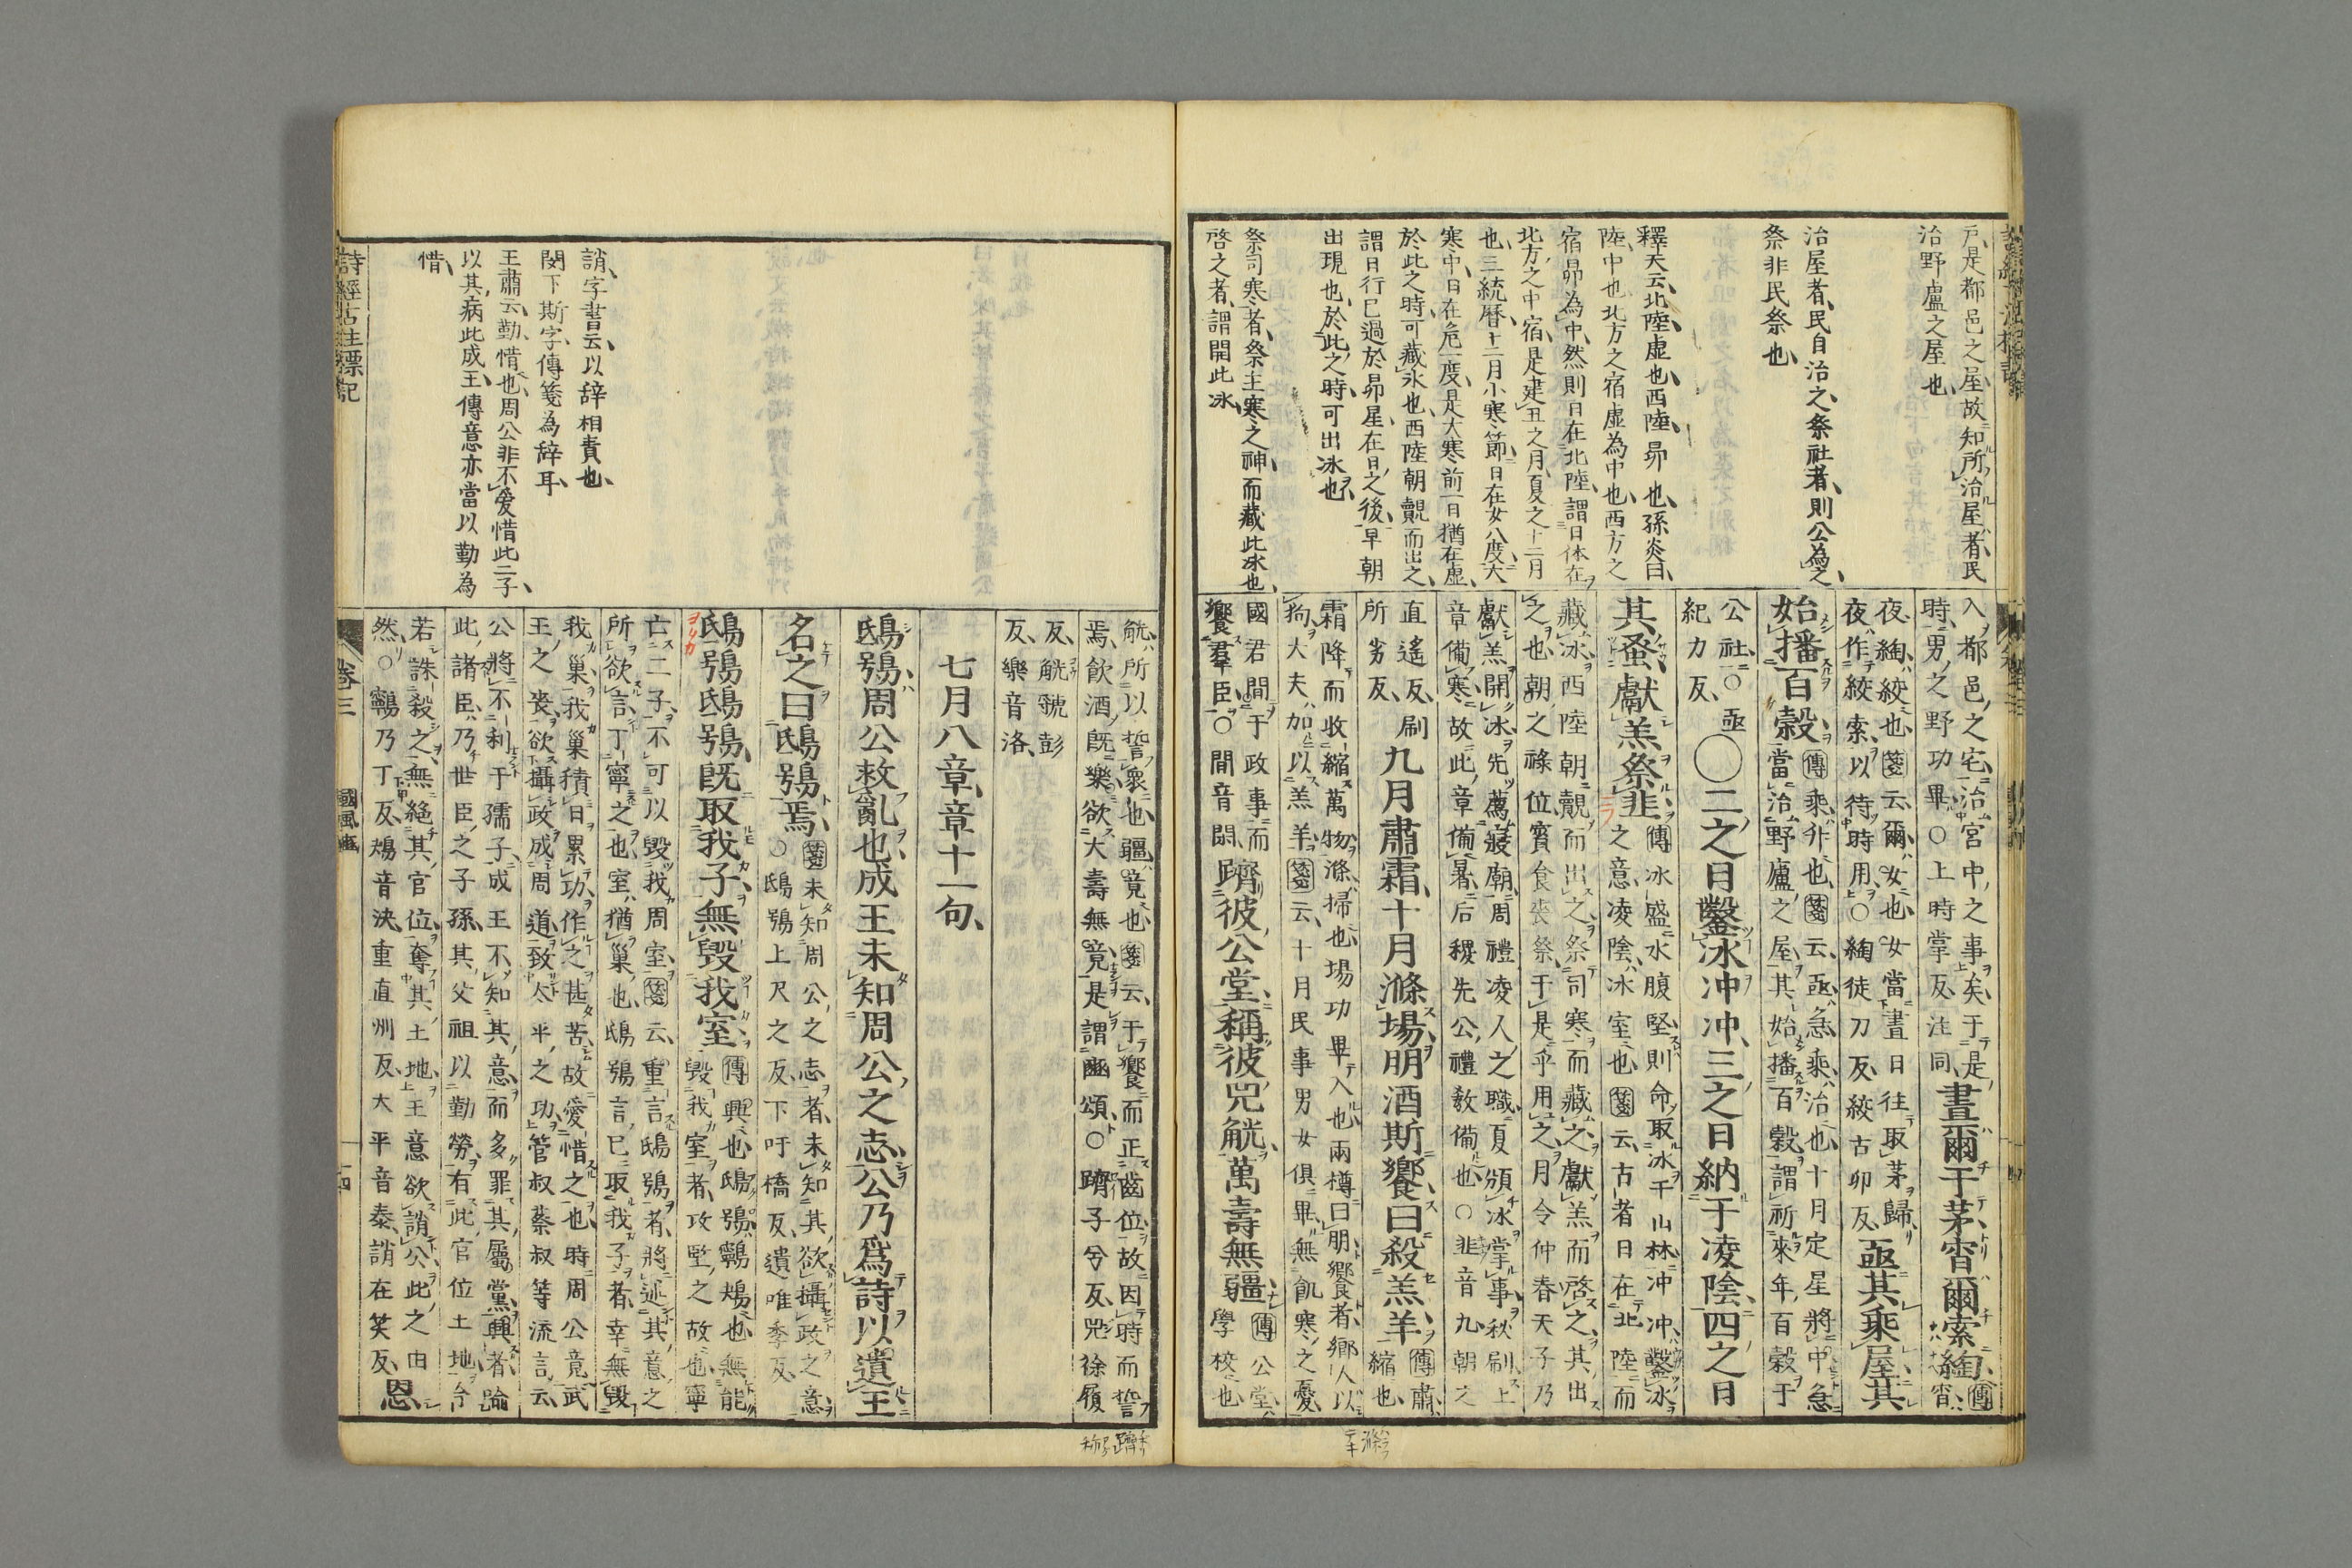 戸是都邑之屋故知所治屋者民
治野廬之屋也
治屋者民自治之祭社者則公為之
祭非民祭也
釋天云北陸虛也西陸昴也孫炎曰
陸中也北方之宿虛為中也西方之
宿昴為中然則日在北陸謂日体在
北方之中宿是建丑之月夏之十二月
也三統暦十二月小寒節日在女八度大
寒中日在危一度是大寒前一日猶在虛
於此之時可藏氷也西陸朝覿而出之
謂日行已過於昴星在日之後早朝
出現也於此之時可出氷也
祭司寒者祭主寒之神而藏此氷也
啓之者謂開此氷
入都邑之宅治宮中之事矣于是
時男之野功畢○上時掌反注同
晝爾于茅宵爾索綯
傳宵
夜綯絞也箋云爾女也女當晝日往取茅歸
夜作絞索以待時用○綯徒刀反絞古卯反
亟其乘屋其
始播百穀
傳乘升也箋云亟急乘治也十月定星將中急
當治野廬之屋其始播百穀謂祈來年百穀于
公社○亟
紀力反
○二之日鑿冰冲冲三之日納于凌陰四之日
其蚤獻羔祭韭
傳冰盛水腹堅則命取冰于山林冲冲鑿冰
之意凌陰冰室也箋云古者日在北陸而
藏冰西陸朝覿而出之祭司寒而藏之獻羔而啓之其出
之也朝之祿位賓食喪祭于是乎用之月令仲春天子乃
獻羔開冰先薦寢廟周禮凌人之職夏頒冰掌事秋刷上
章備寒故此章備暑后稷先公禮教備也○韭音九朝之
直遙反刷
所劣反
九月肅霜十月滌場朋酒斯饗曰殺羔羊
傳肅
縮也
霜降而收縮萬物滌掃也場功畢入也兩樽曰朋饗者鄉人以
狗大夫加以羔羊箋云十月民事男女俱畢無飢寒之憂
國君間于政事而
饗羣臣○間音閑
躋彼公堂稱彼兕觥萬壽無疆
傳公堂
學校也
觥所以誓衆也疆竟也箋云于饗而正齒位故因時而誓
焉飲酒既樂欲大壽無竟是謂豳頌○躋子兮反兕徐履
反觥虢彭
反樂音洛
七月八章章十一句
鴟鴞周公救亂也成王未知周公之志公乃爲詩以遺王
名之曰鴟鴞焉
箋未知周公之志者未知其欲攝政之意
○鴟鴞上尺之反下吁橋反遺唯季反
鴟鴞鴟鴞既取我子無毀我室
傳興也鴟鴞鸋鴂也無能
毀我室者攻堅之故也寧
亡二子不可以毀我周室箋云重言鴟鴞者將述其意之
所欲言丁寧之也室猶巢也鴟鴞言已取我子者幸無毀
我巢我巢積日累功作之甚苦故愛惜之也時周公竟武
王之喪欲攝政成周道致大平之功管叔蔡叔等流言云
公將不利于孺子成王不知其意而多罪其屬黨興者喩
此諸臣乃世臣之子孫其父祖以勤勞有此官位土地今
若誅殺之無絕其官位奪其土地王意欲誚公此之由
然○鸋乃丁反鴂音決重直洲反大平音泰誚在笑反
恩
誚字書云以辞相責也
閔下斯字傳箋為辞耳
王肅云勤惜也周公非不愛惜此二子
以其病此成王傳意亦當以勤為
惜
詩經古注標記
卷三
國風豳
十四